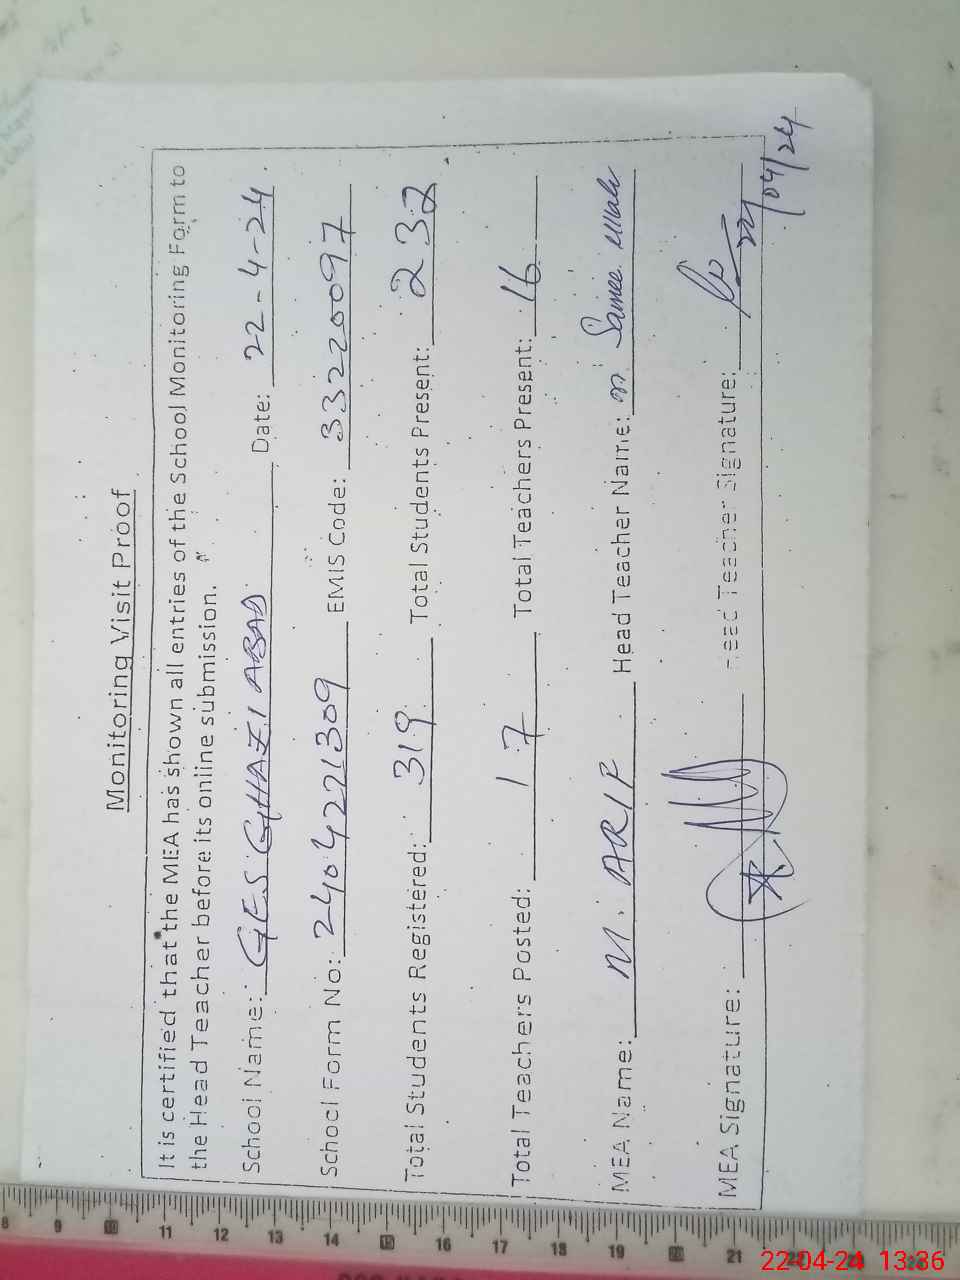 Monitoring Visit Proof
It is certified that the MEA has shown all entries of the School Monitoring Form to
the Head Teacher before its online submission.
School Name: GES GHAZI ABAD Date: 22-4-24
School Form No: 2404221309 EMIS Code: 33220097
Total Students Registered: 319 Total Students Present: 232
Total Teachers Posted: 17 Total Teachers Present: 16
MEA Name: M. ARIF Head Teacher Name: M Samee Ullah
MEA Signature: Head Teacher Signature:
22/04/24
8 9 10 11 12 13 14 15 16 17 18 19 20 21 22 23 24
22-04-24 13:36